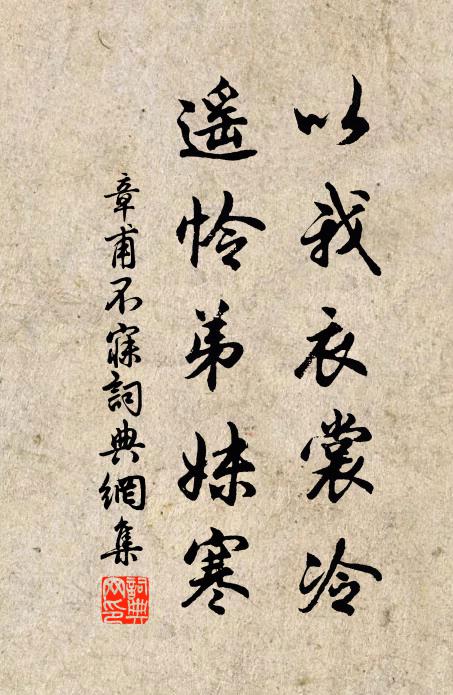 以我衣裳冷
遥怜弟妹寒
章甫不寐詞典網集
詞典網印